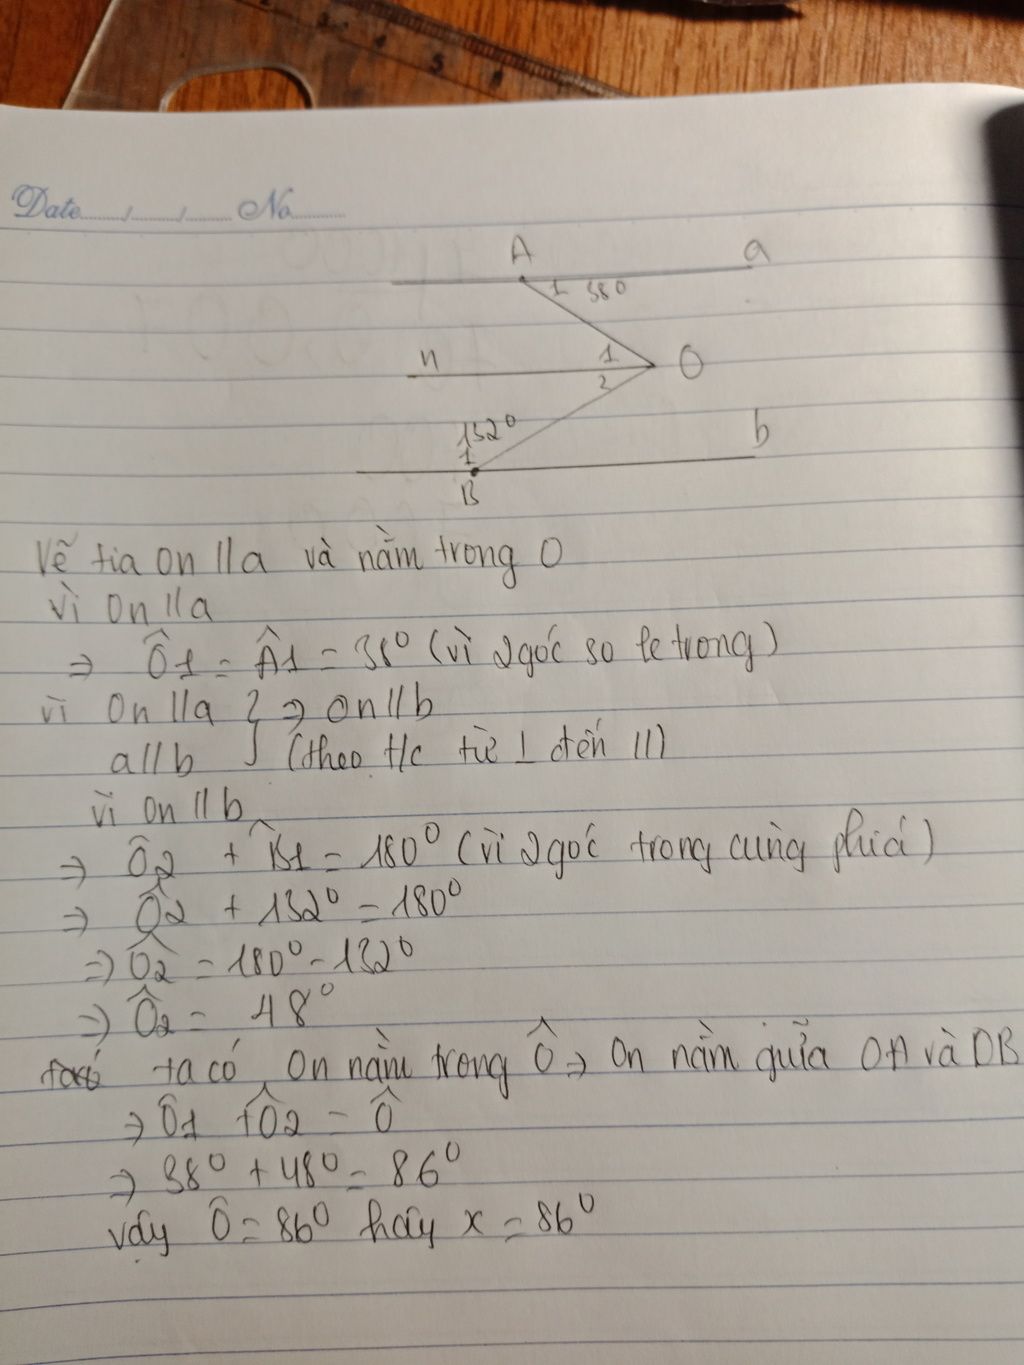 2 3 4 5 6
Date / / No
A a
1 38⁰
n 1 O
2
132⁰ b
1
B
Vẽ tia On // a và nằm trong O
Vì On // a
⇒ Ô1 = Â1 = 38⁰ (vì 2 góc so le trong)
Vì On // a } ⇒ On // b
a // b (theo t/c từ ⊥ đến //)
Vì On // b
⇒ Ô2 + B̂1 = 180⁰ (vì 2 góc trong cùng phía)
⇒ Ô2 + 132⁰ = 180⁰
⇒ Ô2 = 180⁰ - 132⁰
⇒ Ô2 = 48⁰
ta có On nằm trong Ô ⇒ On nằm giữa OA và OB
⇒ Ô1 + Ô2 = Ô
⇒ 38⁰ + 48⁰ = 86⁰
vậy Ô = 86⁰ hay x = 86⁰